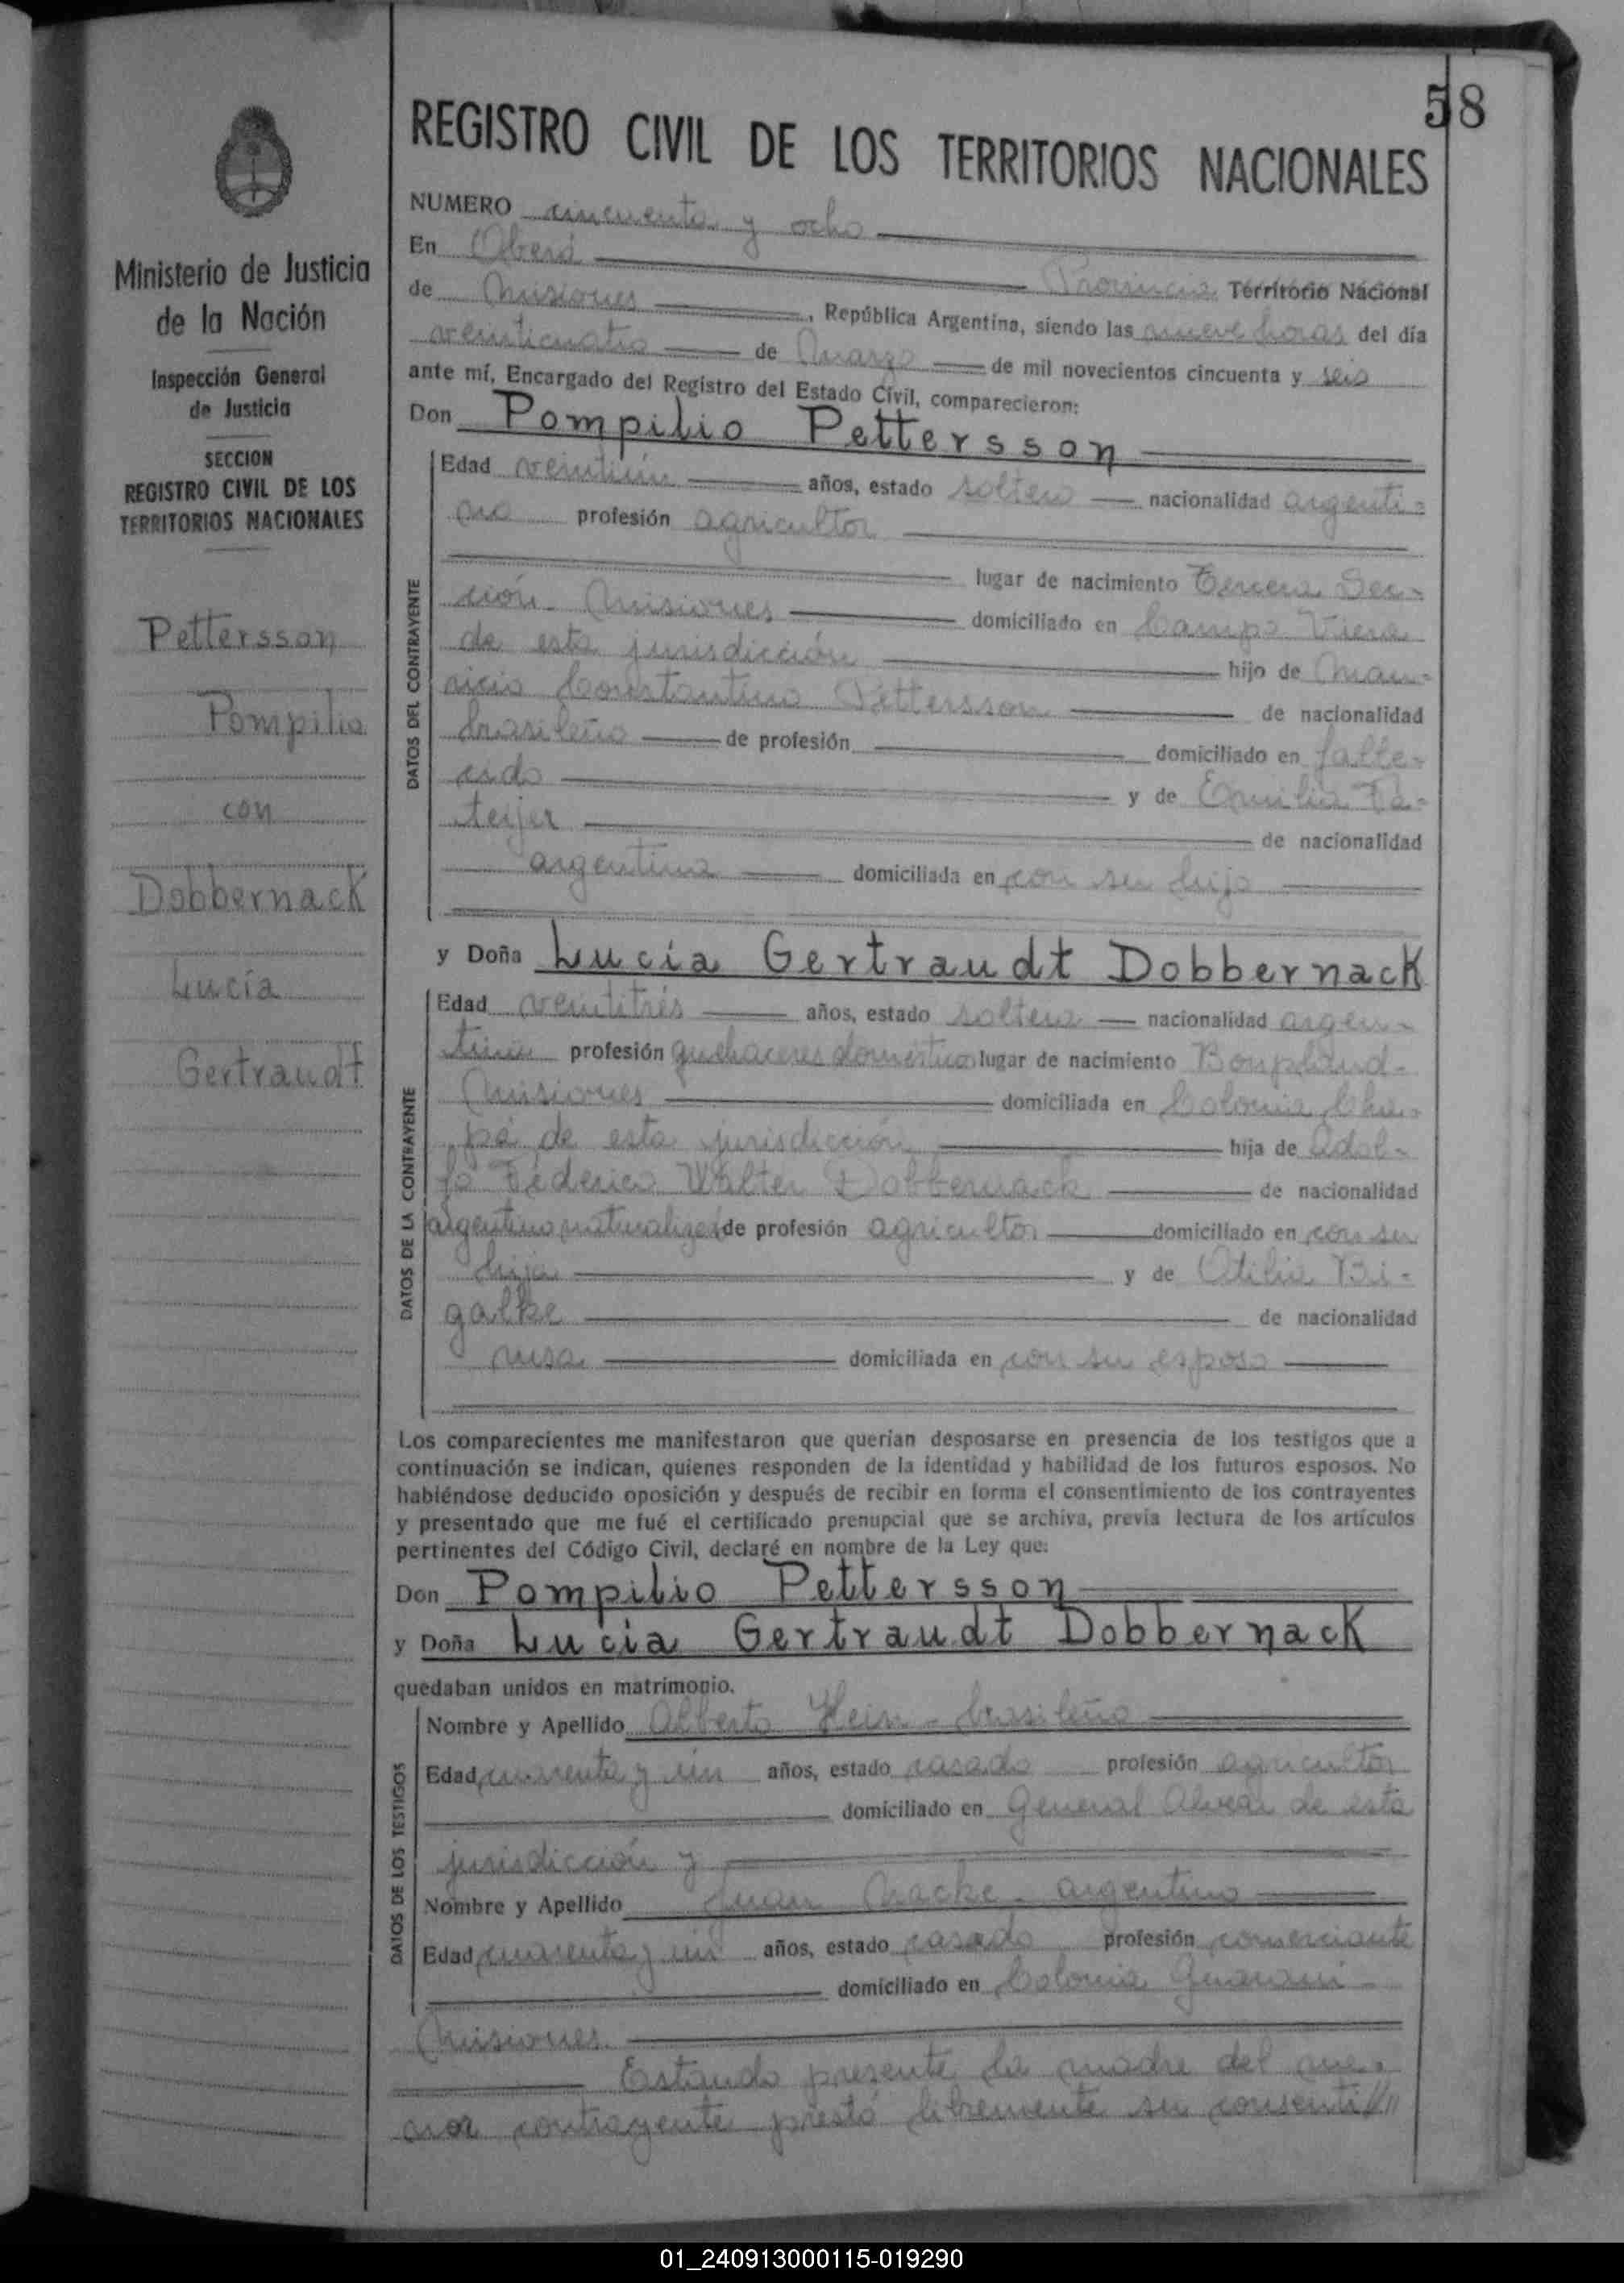 58
REGISTRO CIVIL DE LOS TERRITORIOS NACIONALES
Ministerio de Justicia
de la Nación
Inspección General
de Justicia
SECCION
REGISTRO CIVIL DE LOS
TERRITORIOS NACIONALES
Pettersson
Pompilio
con
Dobbernack
Lucía
Gertraudt
NUMERO cincuenta y ocho
En Oberá Provincia Territorio Nacional
de Misiones, República Argentina, siendo las nueve horas del día
veinticuatro de Marzo de mil novecientos cincuenta y seis
ante mí, Encargado del Registro del Estado Civil, comparecieron:
Don Pompilio Pettersson
DATOS DEL CONTRAYENTE
Edad veintiún años, estado soltero nacionalidad argenti-
no profesión agricultor
lugar de nacimiento Tercera Sec-
ción - Misiones domiciliado en Campo Viera
de esta jurisdicción hijo de Mau-
ricio Constantino Pettersson de nacionalidad
brasileño de profesión domiciliado en falle-
cido y de Emilia
de nacionalidad
argentina domiciliada en con su hijo
y Doña Lucía Gertraudt Dobbernack
DATOS DE LA CONTRAYENTE
Edad veintitrés años, estado soltera nacionalidad argen-
tina profesión quehaceres domésticos lugar de nacimiento Bonpland -
Misiones domiciliada en Colonia Cha-
pá de esta jurisdicción hija de Adol-
fo Federico Walter Dobbernack de nacionalidad
argentino naturalizado de profesión agricultor domiciliado en con su
hija y de Otilia Bi-
galke de nacionalidad
rusa domiciliada en con su esposo
Los comparecientes me manifestaron que querían desposarse en presencia de los testigos que a
continuación se indican, quienes responden de la identidad y habilidad de los futuros esposos. No
habiéndose deducido oposición y después de recibir en forma el consentimiento de los contrayentes
y presentado que me fué el certificado prenupcial que se archiva, previa lectura de los artículos
pertinentes del Código Civil, declaré en nombre de la Ley que:
Don Pompilio Pettersson
y Doña Lucía Gertraudt Dobbernack
quedaban unidos en matrimonio.
DATOS DE LOS TESTIGOS
Nombre y Apellido Alberto Hein - brasileño
Edad cuarenta y un años, estado casado profesión agricultor
domiciliado en General Alvear de esta
jurisdicción y
Nombre y Apellido Juan Macke - argentino
Edad cuarenta y un años, estado casado profesión comerciante
domiciliado en Colonia Guaraní -
Misiones.
Estando presente la madre del me-
nor contrayente prestó libremente su consenti//
01_240913000115-019290